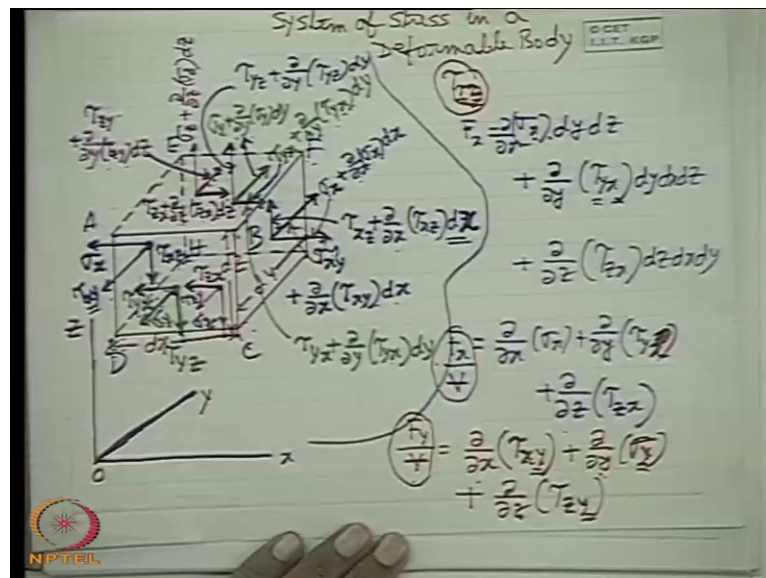 System of Stress in a
Deformable Body
© CET
I.I.T. KGP
τyz + ∂/∂y (τyz) dy
τzy
+ ∂/∂z (τzy) dz
τzx + ∂/∂z (τzx) dz
σx + ∂/∂x (σx) dx
τxz + ∂/∂x (τxz) dx
τxy
+ ∂/∂x (τxy) dx
τyx + ∂/∂y (τyx) dy
A
B
σx
τxy
τyz
D
dx
C
Z
Y
O
x
Fx = ∂/∂x (σx) dy dz
+ ∂/∂y (τyx) dy dx dz
+ ∂/∂z (τzx) dz dx dy
Fx/V = ∂/∂x (σx) + ∂/∂y (τyx)
+ ∂/∂z (τzx)
Fy/V = ∂/∂x (τxy) + ∂/∂y (σy)
+ ∂/∂z (τzy)
NPTEL